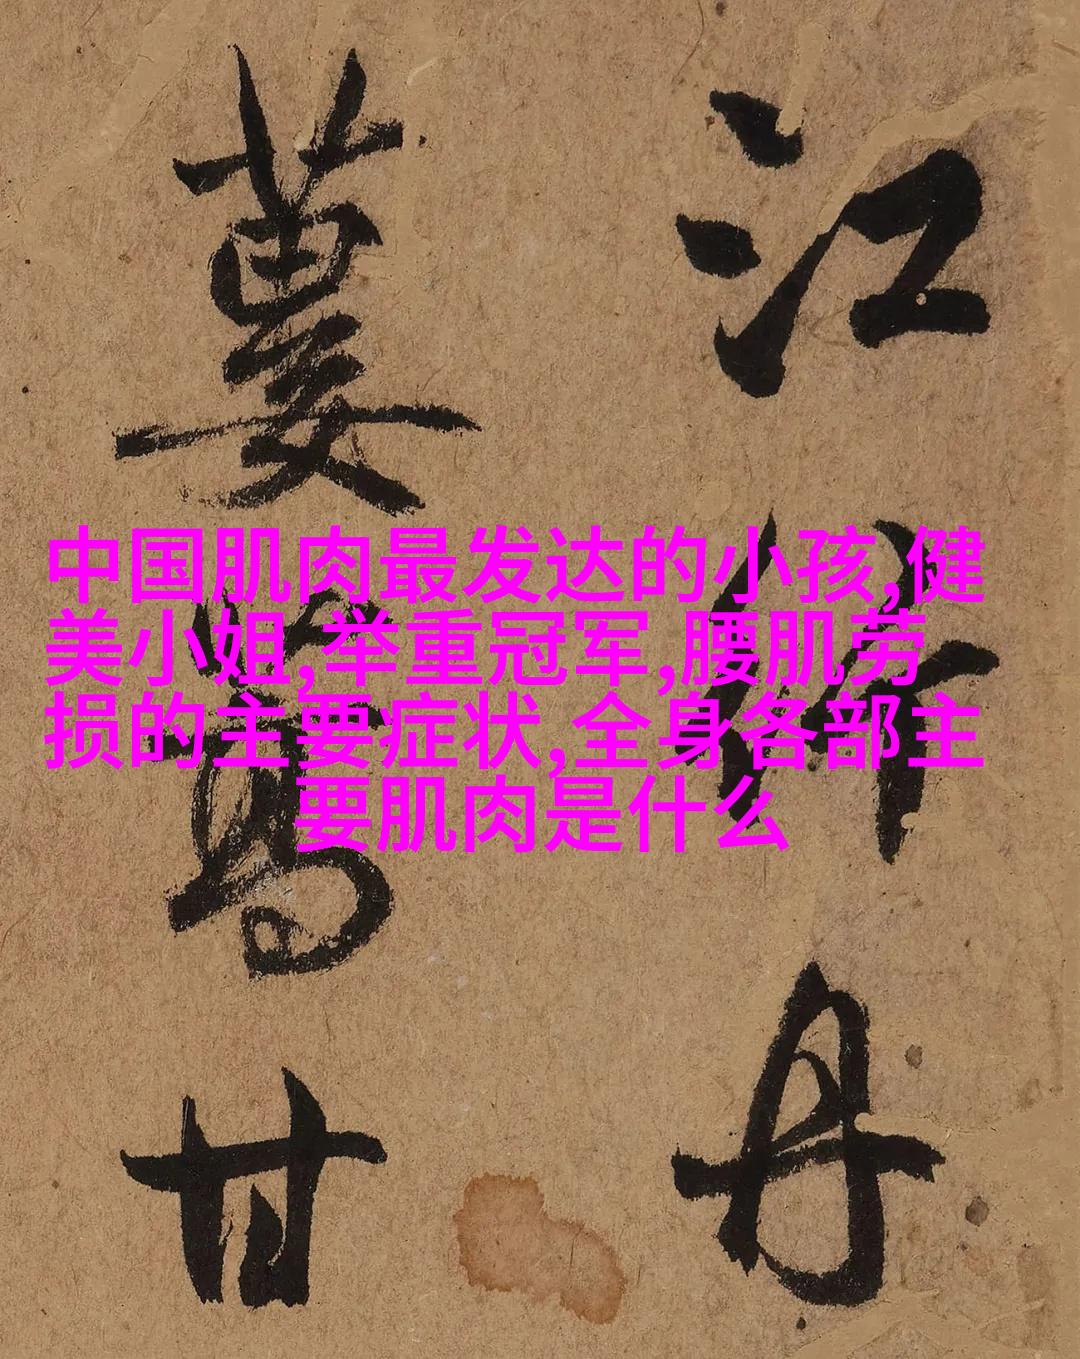 中国肌肉最发达的小孩,健
美小姐,举重冠军,腰肌劳
损的主要症状,全身各部主
要肌肉是什么
江
丹
甘